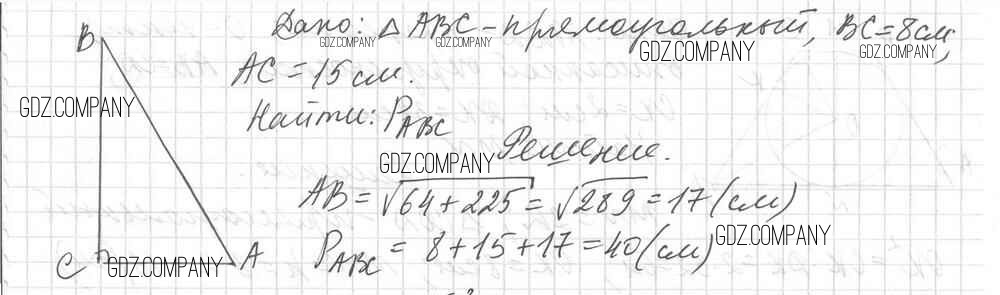 Дано: △ABC - прямоугольный, BC = 8 см,
AC = 15 см.
Найти: P_ABC
Решение.
AB = √64 + 225 = √289 = 17 (см)
P_ABC = 8 + 15 + 17 = 40 (см)
B
C
A
GDZ.COMPANY
GDZ.COMPANY
GDZ.COMPANY
GDZ.COMPANY
GDZ.COMPANY
GDZ.COMPANY
GDZ.COMPANY
GDZ.COMPANY